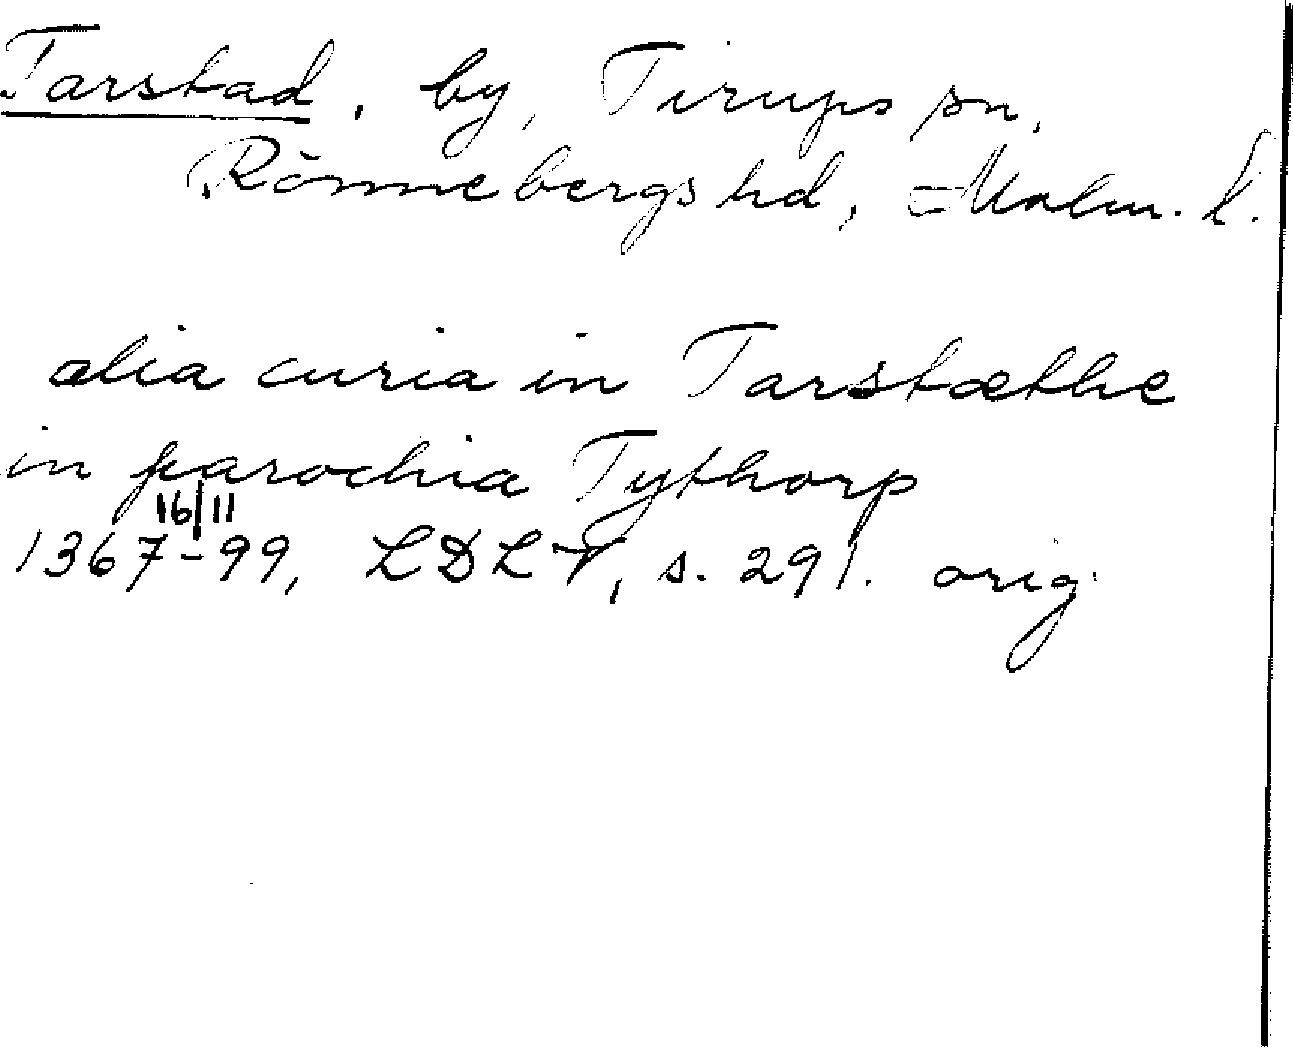 Tarstad, by, Tirups sn,
Rönnebergs hd, Malm. l.
alia curia in Tarstæthe
in parochia Tythorp
16/11
1367-99, LDLV, s. 291. orig.